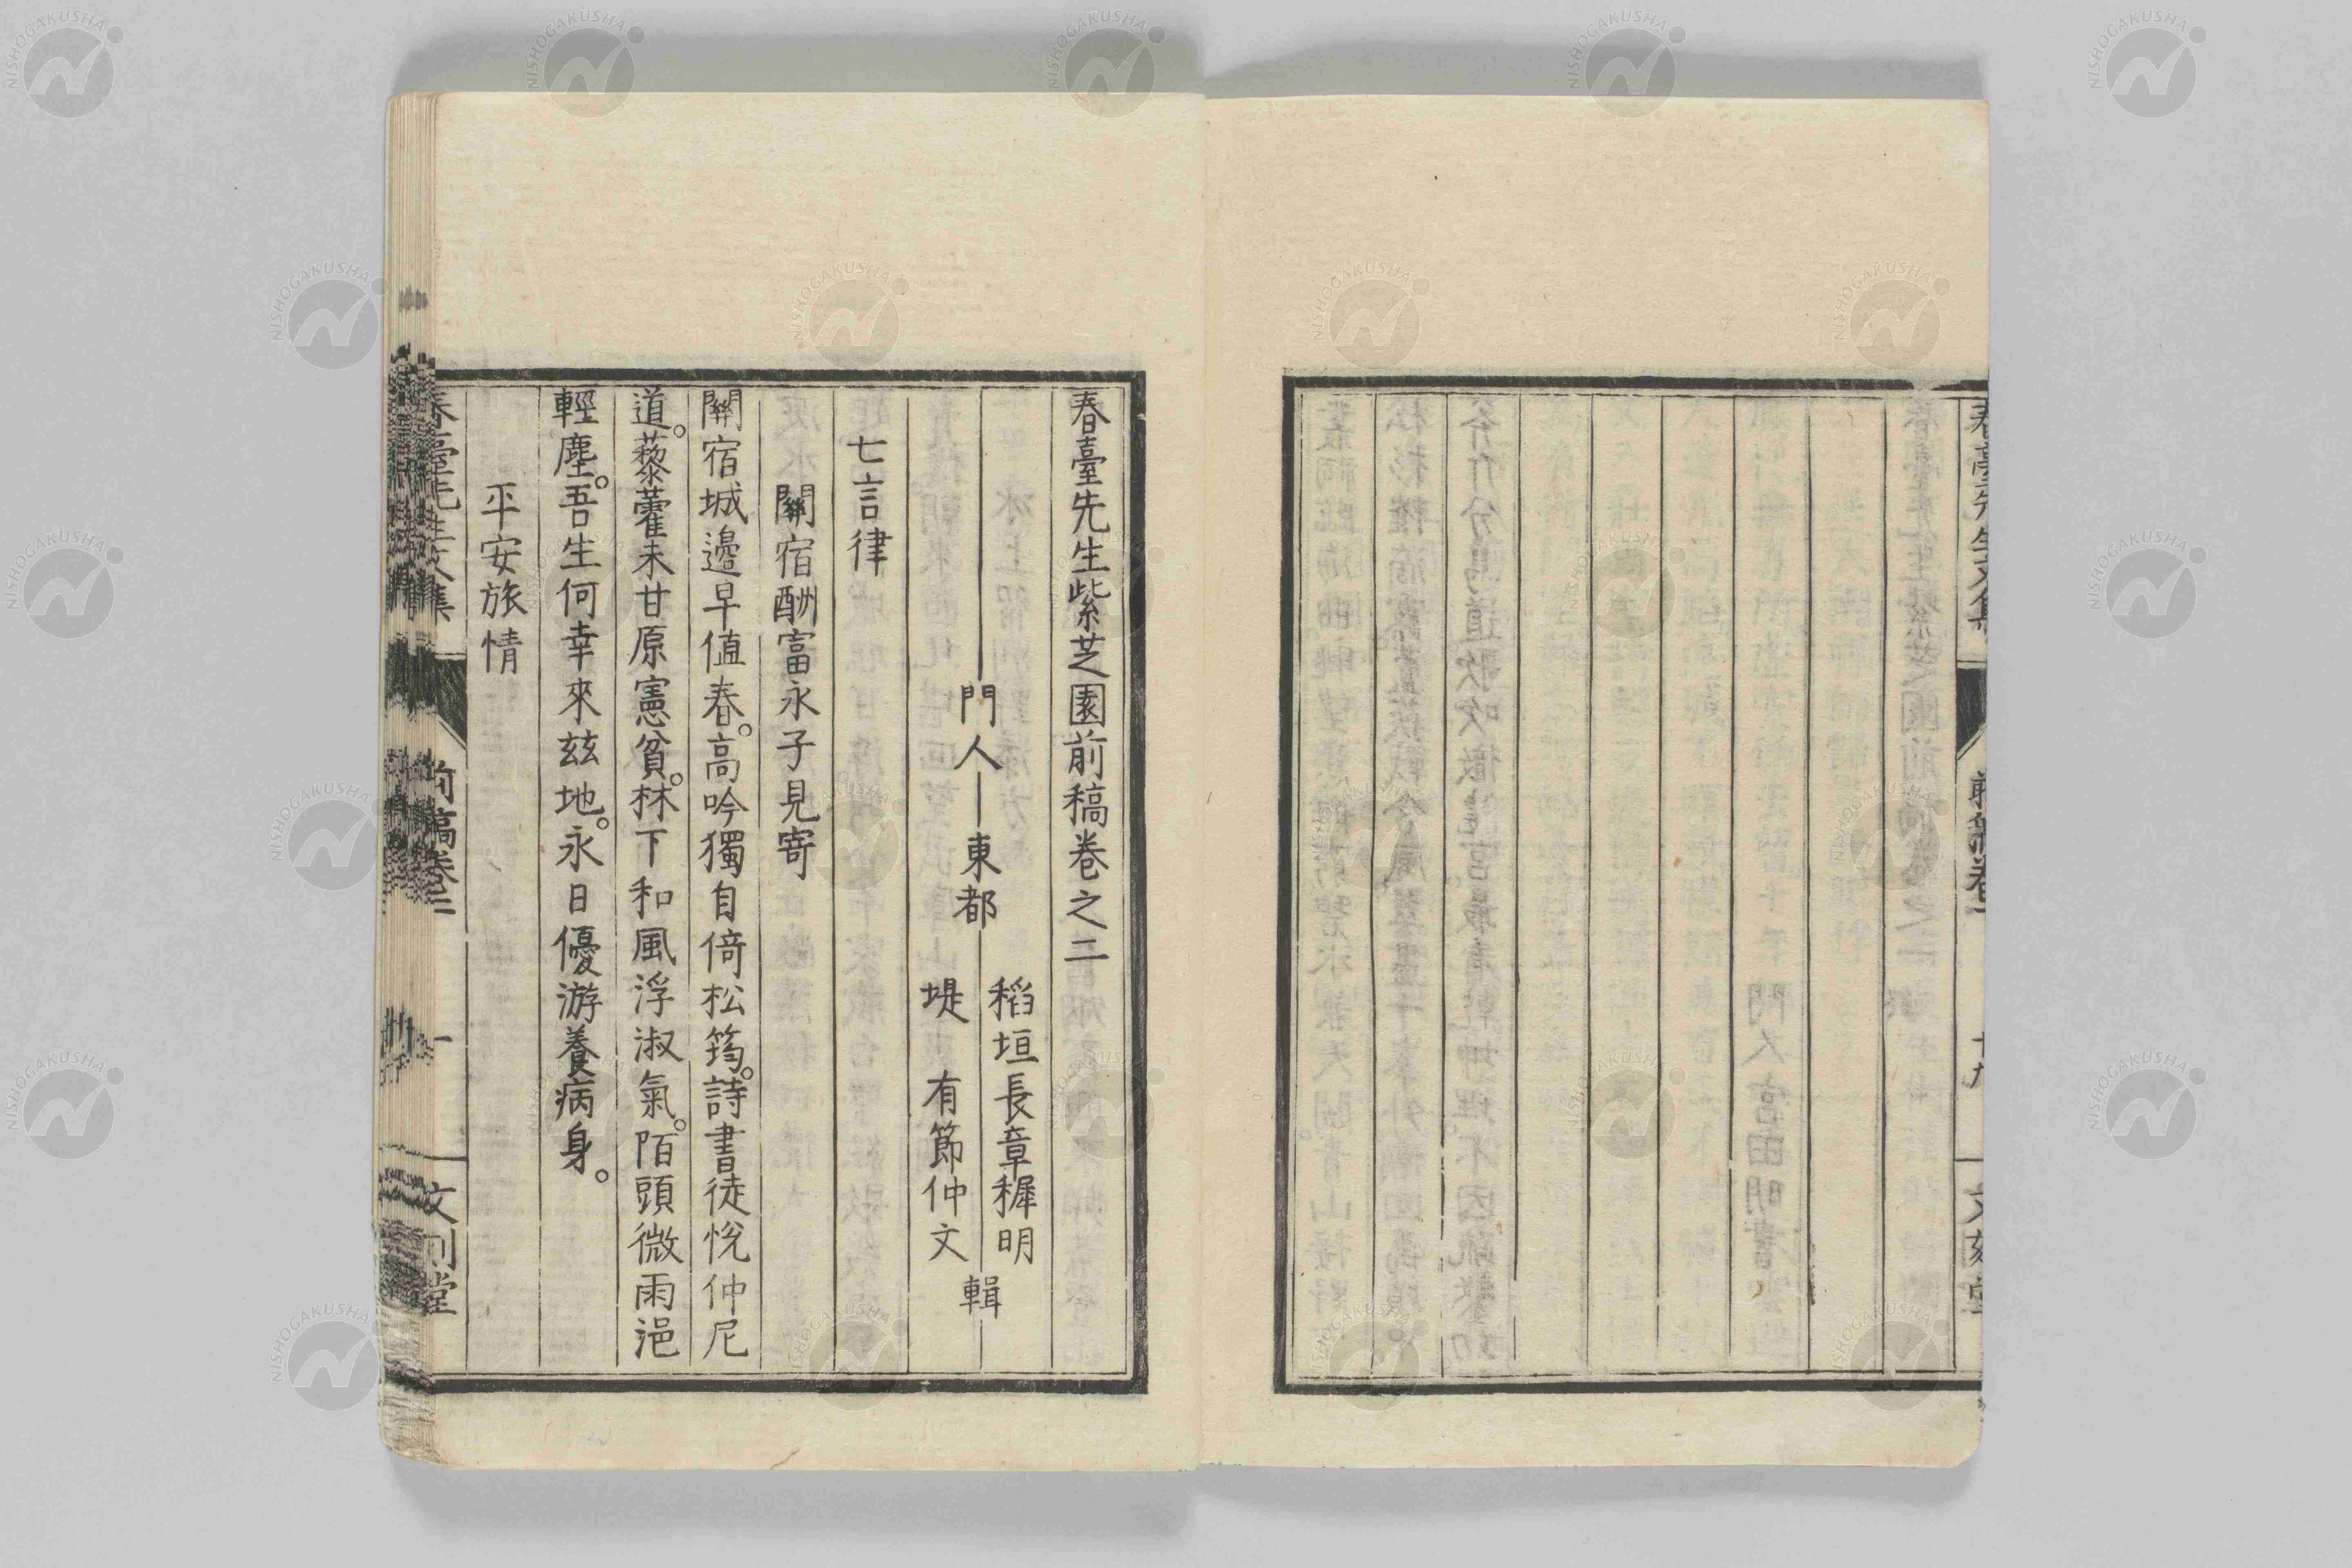 春臺先生紫芝園前稿卷之二
門人 東都 稻垣長章穉明
堤 有節仲文 輯
七言律
關宿酬富永子見寄
關宿城邊早值春。高吟獨自倚松筠。詩書徒悅仲尼
道。藜藿未甘原憲貧。林下和風浮淑氣。陌頭微雨浥
輕塵。吾生何幸來茲地。永日優游養病身。
平安旅情
春臺先生文集 前稿卷二 一 文刻堂
NISHOGAKUSHA